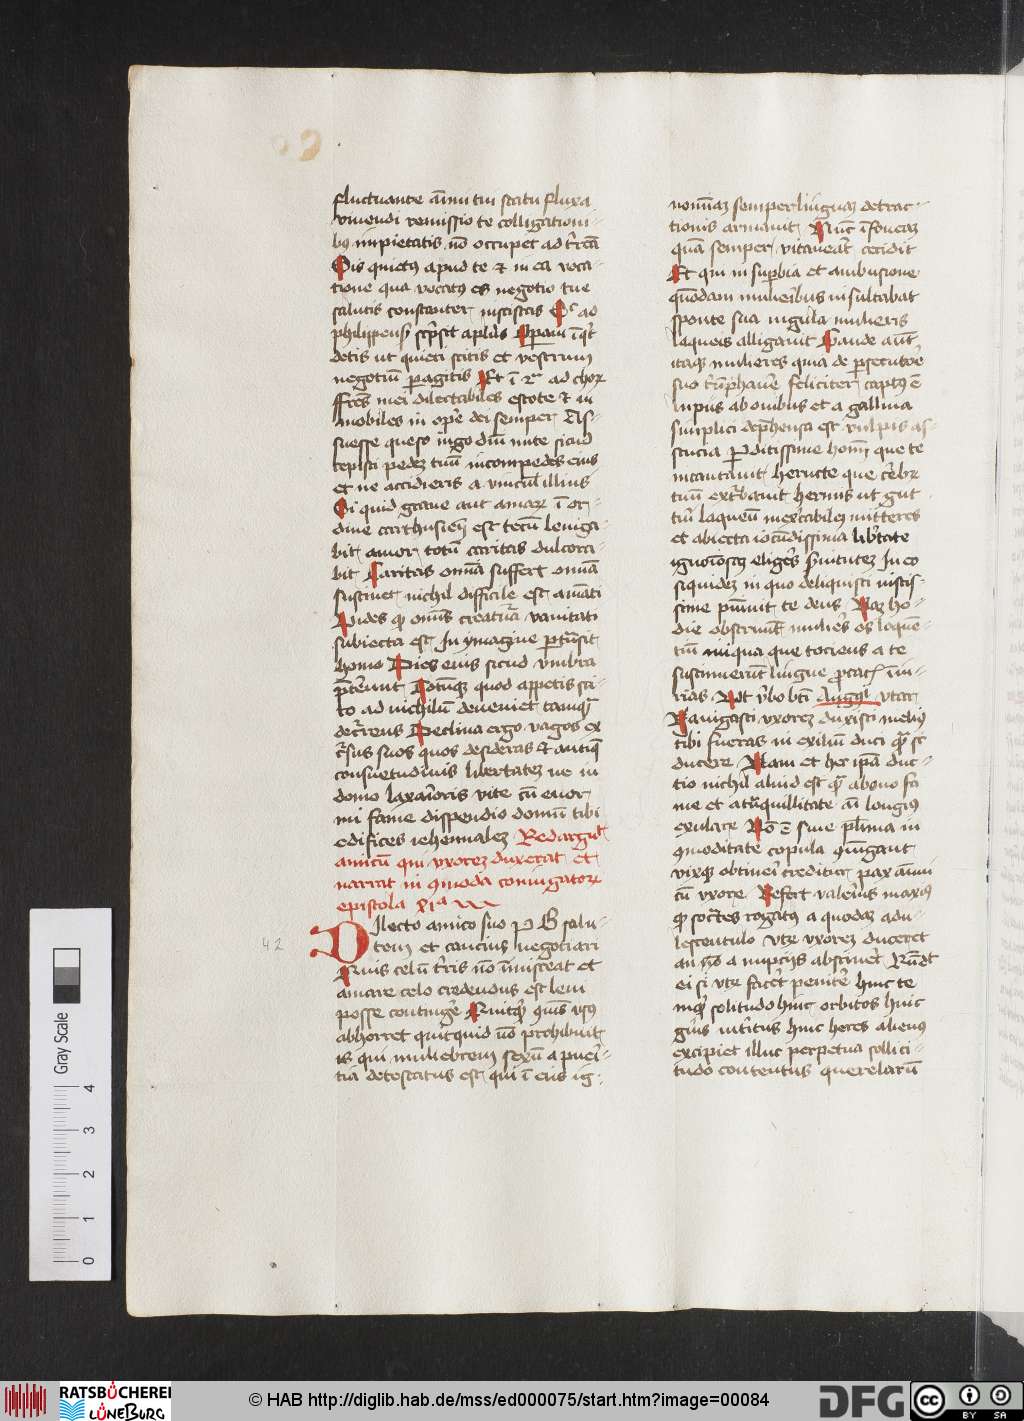 fluctuante aīmi tui statu fluxa
viuendi remissio te colligationi-
bꝰ impietatis nō occupet ad t'rā
Sis quietꝰ apud te et in ea voca-
tione qua vocatꝰ es negotio tue
salutis constanter insistas Et ad
philippens̄ scp̄sit apl'us Operam
detis ut quieti sitis et vestrum
negotiū peragatis Et ī 2ª ad chor
ffr̄es mei dilectabiles estote et in
mobiles in ope dei semper As-
suesse queso iugo dūi nūc sicud
cepisti pedez tuū in compedes eius
et ne accidieris a vincul' illius
Si quid graue aut amarū ī or-
dine carthusien̄ est tecū leuiga-
bit amor totū caritas dulcora-
bit Caritas omnia suffert omnia
sustinet nichil difficile est amāti
Vides qꝫ omīs creatura vanitati
subiecta est In ymagine per trāsit
homo Dies eius sicud vmbra
p̄tereunt Totūqꝫ quod appetis ci-
to ad nichilū deueniet tamqꝫ
decurrens Declina ergo vagos ex
cursus suos quos desideras et antiqꝫ
consuetudinis libertatez ne in
domo laxaīoris vite cū euor
mi fame dispendio domū tibi
edifices iehennalez Redarguit
amicū qui vxorez duxerat et
narrat in cōmoda coniugatorꝫ
epistola xiᵃ
42
Dilecto amico suo P B salu-
tem et caucius negotiari
Quis celū t'ris nō īmisceat et
amare celo credendus est leui
posse contingere Quicqꝫ quis vsꝰ
abhorret quicquid nō prohibuit
is qui muliebrem sexū a pueri-
tia detestatus est qui ī eiis ig-
nomīaz semper linguaz detrac-
tionis armauit Nūc ī foueaz
quā semper vitauerat cecidit
Et qui in superbia et ambicione
quodam mulieribus insultabat
sponte sua iugula mulieris
laqueis alligauit Gaude aūt
itaqꝫ mulieres quia de persecutore
suo triumphauere feliciter captꝰ ē
lupus ab ouibus et a gallina
simplici deprehensa est vulpis as-
tucia Perditissime homi que te
incantauit heructe que cerebrꝫ
tuū exturbauit herinis ut gut
turi laqueū inextricabilē mitteres
et abiecta iocūdissima libertate
ignotosqꝫ eligeres seruitutez In eo
siquidez in quo deliquisti iustis-
sime puniuit te deus Nam ho-
die obstruunt mulieres os loquen-
tiū iniqua que tociens a te
sustinuerūt lingue procacis iniu-
rias Ut verbo bti Augꝰ vtar
Nauigasti vxorez duxisti melius
tibi fueras in exiliū duci qꝫ sic
ducere Nam et hec ipā duc-
tio nichil aliud est qꝫ a bono fa
me et a trāquillitate aī longiꝰ
exulare Nō ē sine pl'ima in
cōmoditate copula coniugant
vixqꝫ obtineri creditur pax animi
cū vxore Refert valerius maxiꝰ
qꝫ socrates rogatꝰ a quodaz adu-
lescentulo vtrꝫ vxorez duceret
an nō a nupcijs abstineret Rūdit
ei si vtrꝫ faceret penitere hinc te
inqꝫ solitudo hinc orbitos hinc
gn̄is interitus hinc heres alienꝰ
excipiet illuc perpetua sollici-
tudo contentus querelarū
Gray Scale
0 1 2 3 4
RATSBÜCHEREI
LÜNEBURG
© HAB http://diglib.hab.de/mss/ed000075/start.htm?image=00084
DFG
cc BY SA